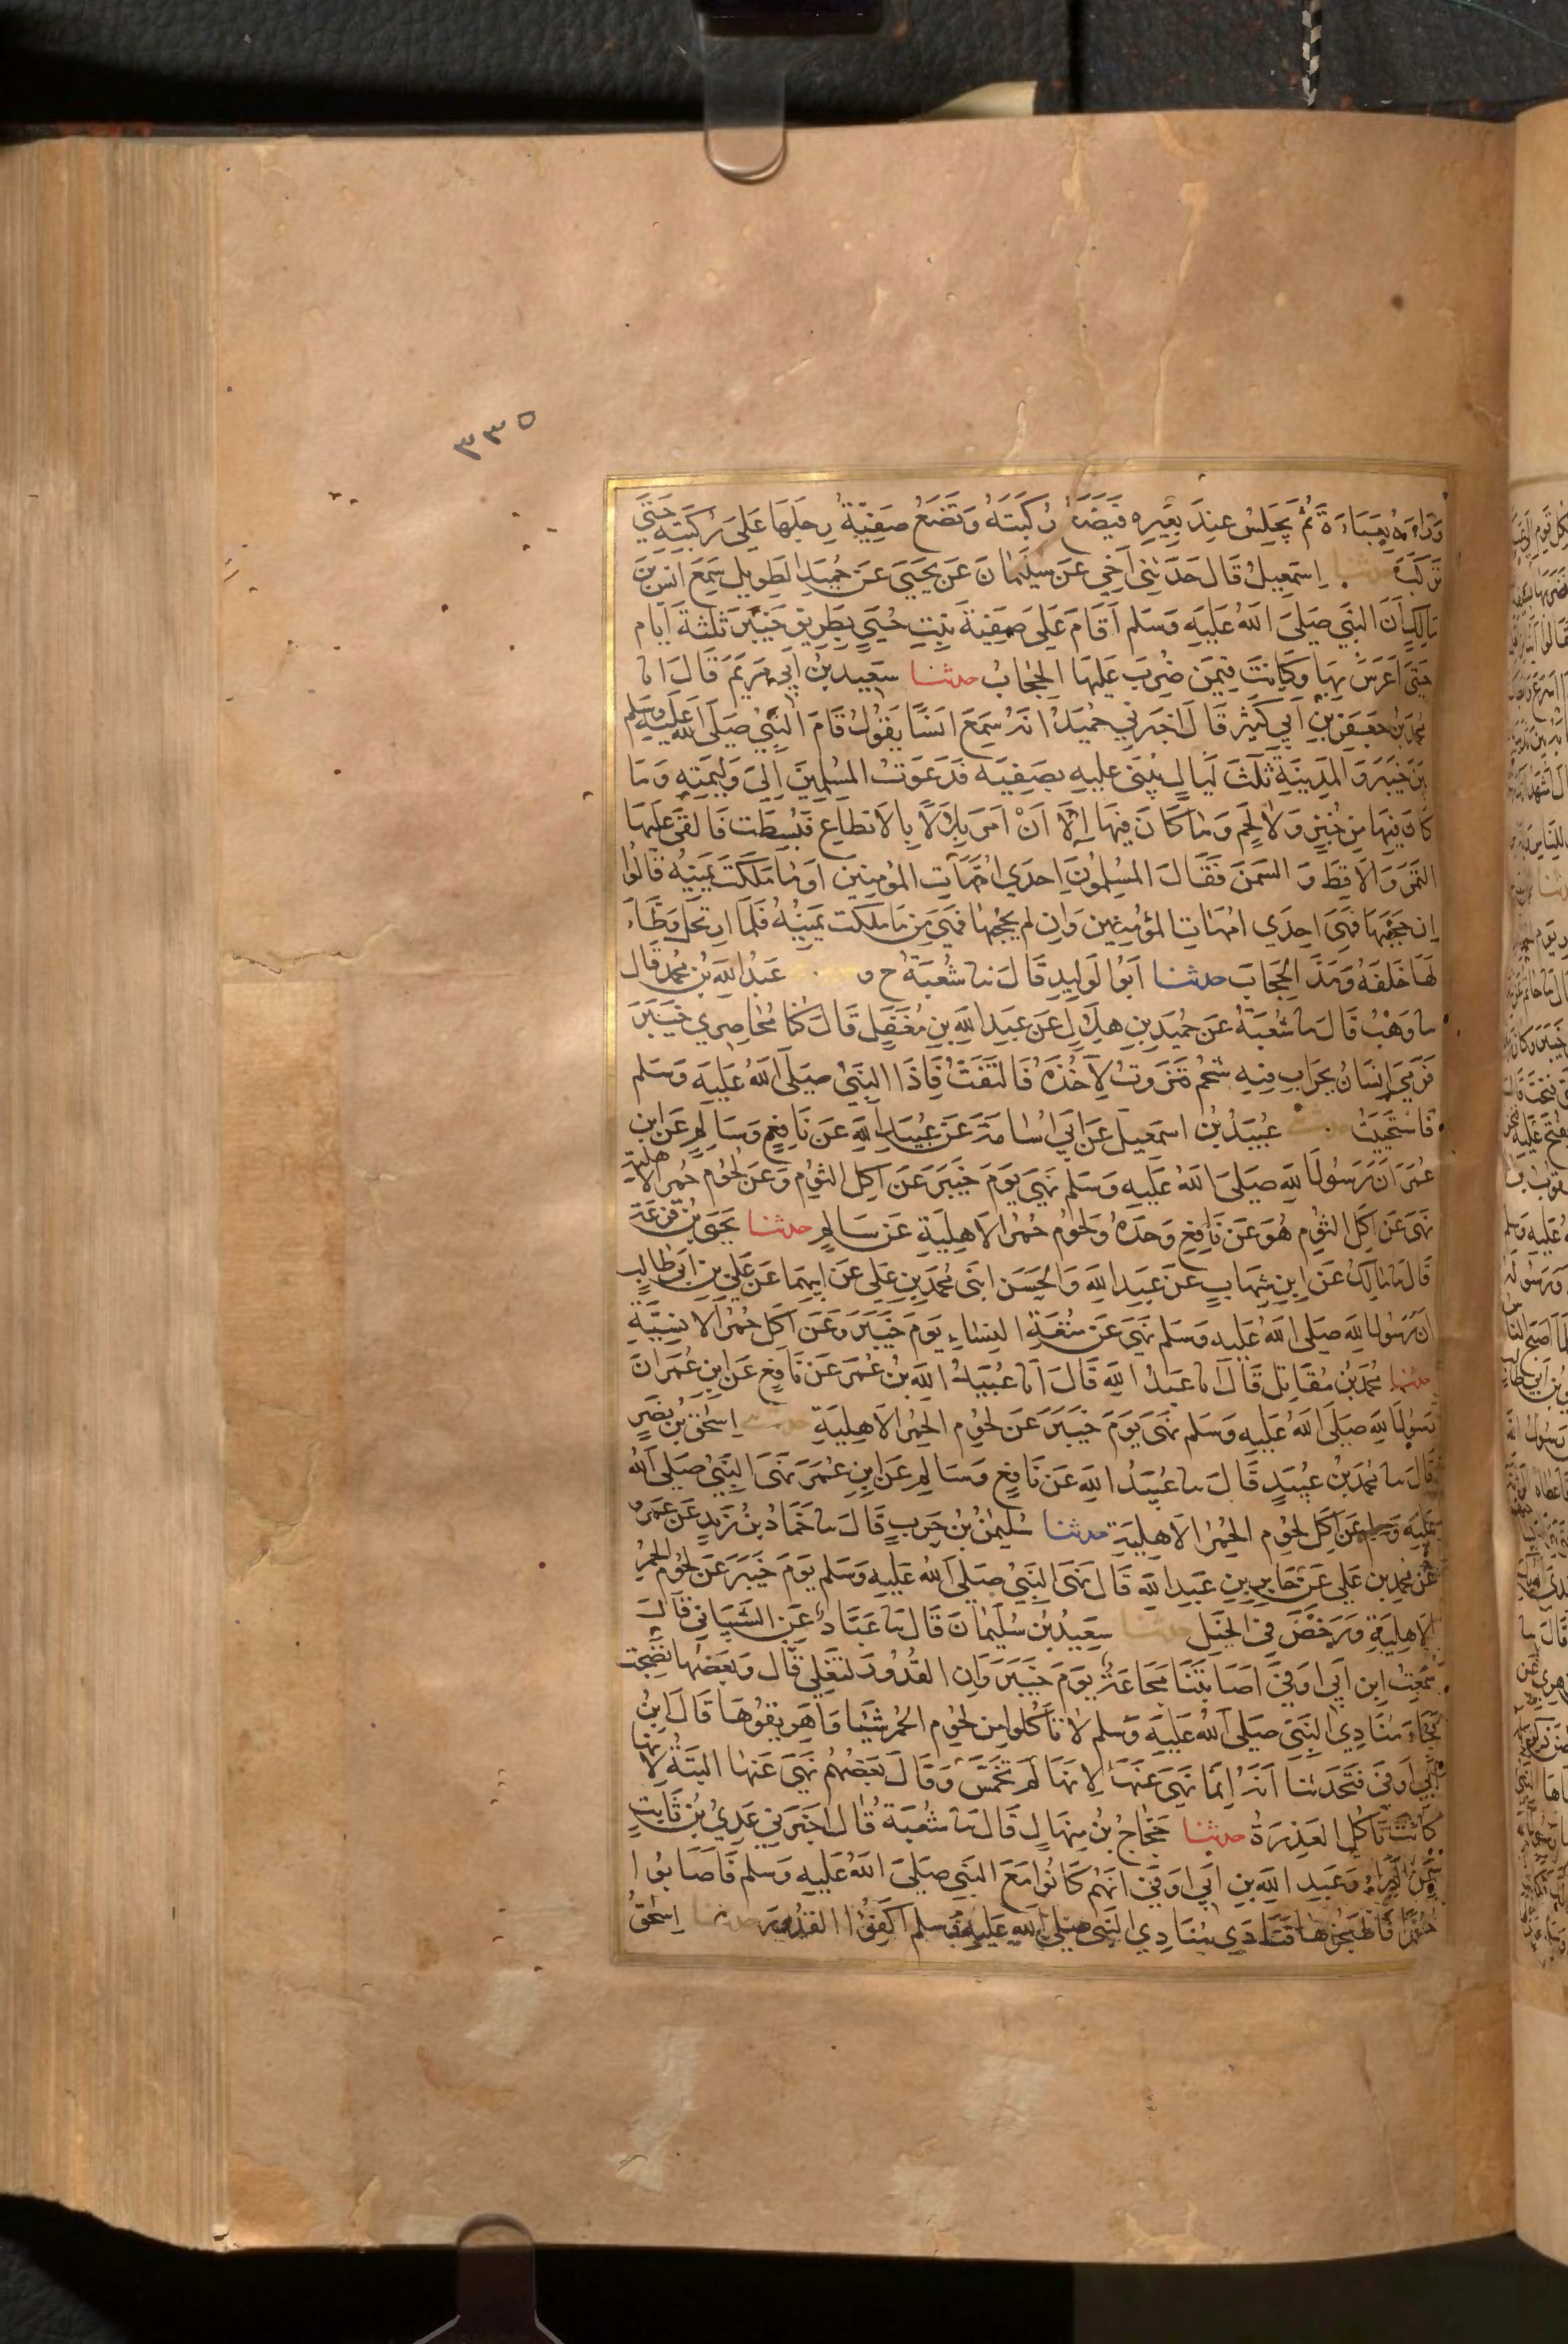 ٣٣٥
وراءه بعباءة ثم يجلس عند بعيره فيضع ركبته وتضع صفية رجلها على ركبته حتى
تركب حدثنا اسمعيل قال حدثني اخي عن سليمان عن يحيى عن حميد الطويل سمع انس بن
مالك أن النبي صلى الله عليه وسلم أقام على صفية بنت حيي بطريق خيبر ثلثة ايام
حتى اعرس بها وكانت فيمن ضرب عليها الحجاب حدثنا سعيد بن ابي مريم قال انا
محمد بن جعفر بن ابي كثير قال اخبرني حميد انه سمع انسا يقول قام النبي صلى الله عليه وسلم
بين خيبر والمدينة ثلث ليال يبنى عليه بصفيه فدعوت المسلمين إلى وليمته وما
كان فيها من خبز ولا لحم وما كان فيها إلا ان امر بلالا بالانطاع فبسطت فالقى عليها
التمر والاقط والسمن فقال المسلمون احدي امهات المؤمنين او ما ملكت يمينه قالوا
إن حجبها فهي احدي امهات المؤمنين وان لم يحجبها فهي مما ملكت يمينه فلما ارتحل وطاء
لها خلفه ومد الحجاب حدثنا ابو الوليد قال نا شعبة ح و عبد الله بن محمد قال
نا وهب قال نا شعبة عن حميد بن هلال عن عبد الله بن مغفل قال كنا محاصري خيبر
فرمى إنسان بجراب فيه شحم فنزوت لآخذه فالتفت فاذا النبي صلى الله عليه وسلم
فاستحييت حدثنا عبيد بن اسمعيل عن ابي اسامة عن عبيد الله عن نافع وسالم عن ابن
عمر ان رسول الله صلى الله عليه وسلم نهى يوم خيبر عن اكل الثوم وعن لحوم حمر الاهلية
نهى عن اكل الثوم هو عن نافع وحده ولحوم حمر الاهلية عن سالم حدثنا يحيى بن قزعة
قال نا مالك عن ابن شهاب عن عبد الله والحسن ابني محمد بن علي عن ابيهما عن علي بن ابي طالب
ان رسول الله صلى الله عليه وسلم نهى عن متعة النساء يوم خيبر وعن اكل حمر الانسية
حدثنا محمد بن مقاتل قال نا عبد الله قال انا عبيد الله بن عمر عن نافع عن ابن عمر ان
رسول الله صلى الله عليه وسلم نهى يوم خيبر عن لحوم الحمر الاهلية حدثني اسحق بن نصر
قال نا محمد بن عبيد قال نا عبيد الله عن نافع وسالم عن ابن عمر نهى النبي صلى الله
عليه وسلم عن اكل لحوم الحمر الاهلية حدثنا سليمن بن حرب قال نا حماد بن زيد عن عمرو
عن محمد بن علي عن جابر بن عبد الله قال نهى النبي صلى الله عليه وسلم يوم خيبر عن لحوم الحمر
الاهلية ورخص في الخيل حدثنا سعيد بن سليمان قال نا عباد عن الشيباني قال
سمعت ابن ابي اوفى اصابتنا مجاعة يوم خيبر وان القدور لتغلي قال وبعضها نضجت
فجاء منادي النبي صلى الله عليه وسلم لا تأكلوا من لحوم الحمر شيئا واهريقوها قال ابن
أبي اوفى فتحدثنا انه إنما نهى عنها لانها لم تخمس وقال بعضهم نهى عنها البتة لانها
كانت تأكل العذرة حدثنا حجاج بن منهال قال نا شعبة قال اخبرني عدي بن ثابت
عن البراء وعبد الله بن ابي اوفى انهم كانوا مع النبي صلى الله عليه وسلم فاصابوا
حمرا فاطبخوها فنادى منادي النبي صلى الله عليه وسلم اكفئوا القدور حدثنا اسحق